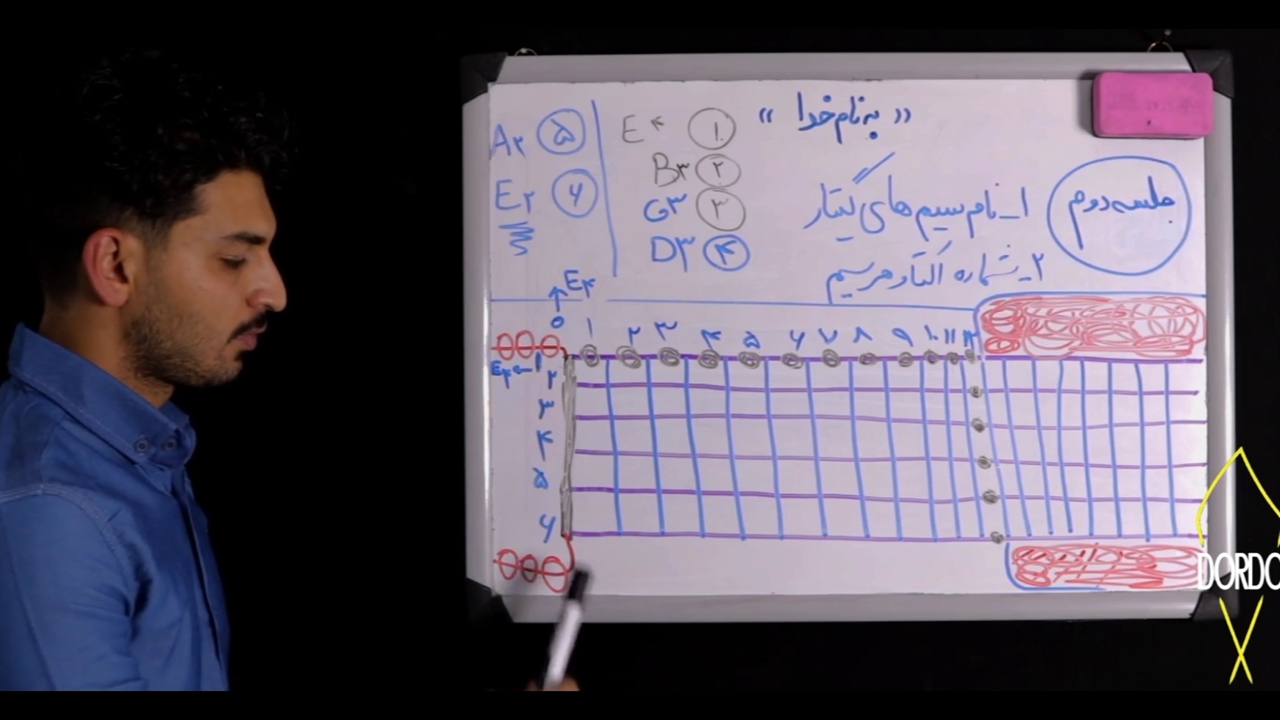 « به نام خدا »
جلسه دوم
۱_ نام سیم های گیتار
۲_ شماره اکتاو هر سیم
E۴ ۱
B۳ ۲
G۳ ۳
D۳ ۴
A۲ ۵
E۲ ۶
E۴
۰ ۱ ۲ ۳ ۴ ۵ ۶ ۷ ۸ ۹ ۱۰ ۱۱ ۱۲
E۴ ← ۱
۲
۳
۴
۵
۶
DORDO